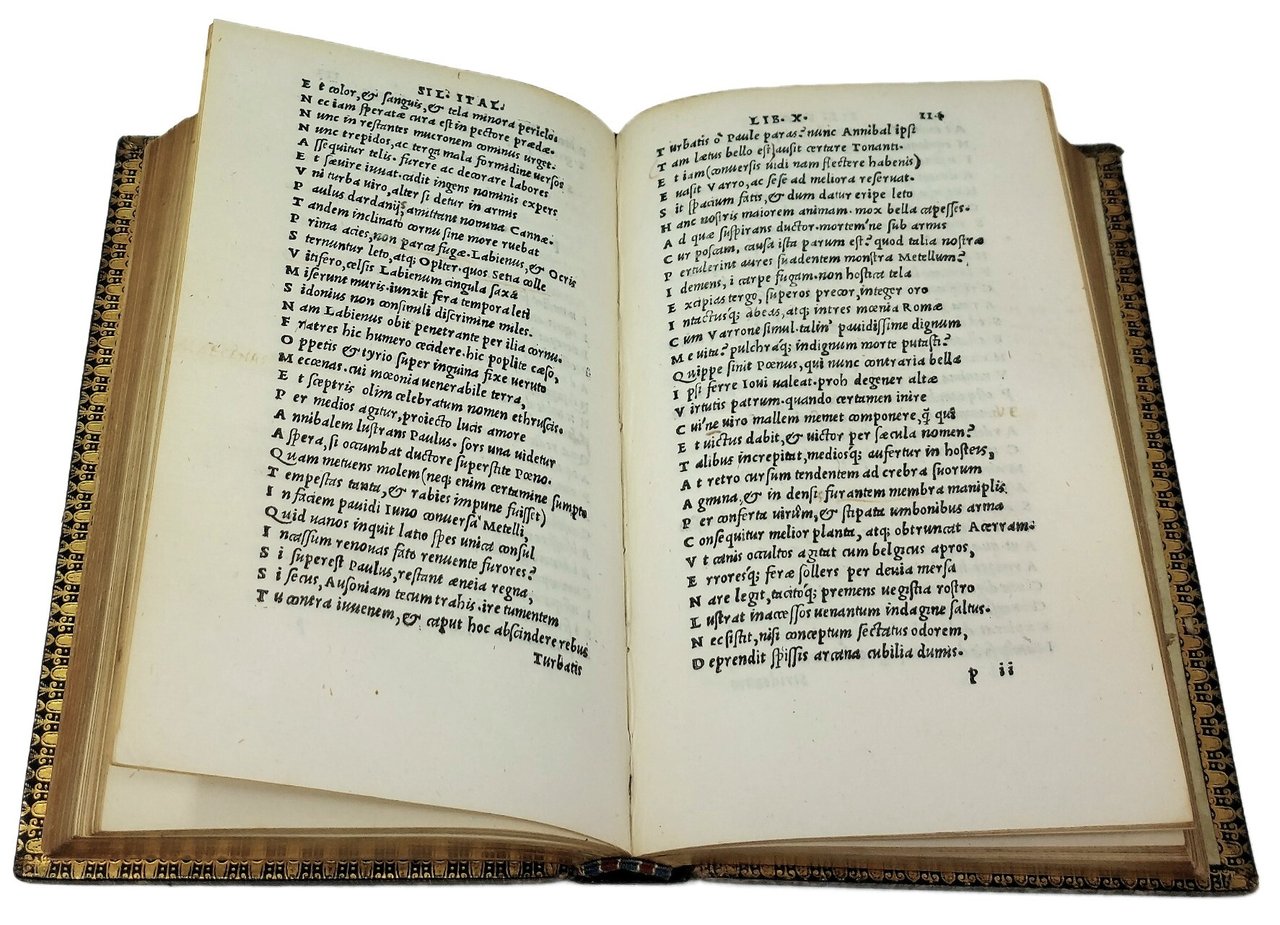 SIL. ITAL.
E t color, & sanguis, & tela minora periclo.
N ec iam speratæ cura est in pectore prædæ.
N unc in restantes mucronem cominus urget.
N unc trepidos, ac terga mala formidine versos
A ssequitur telis. furere ac decorare labores
E t sævire iuvat. cadit ingens nominis expers
V ni turba viro, alter si detur in armis
P aulus dardanijs, amittant nomina Cannæ.
T andem inclinato cornu sine more ruebat
P rima acies, non parca fugæ. Labienus, & Ocris
S ternuntur leto, atq; Opiter. quos Setia colle
V itifero, celsis Labienum cingula saxis
M iserunt muris. iunxit fera tempora leti
S idonius non consimili discrimine miles.
N am Labienus obit penetrante per ilia cornu.
F ratres hic humero cecidere. hic poplite cæso,
O ppetis & tyrio super inguina fixe veruto
M ecœnas. cui mœonia venerabile terra,
E t sceptris olim celebratum nomen ethruscis.
P er medios agitur, proiecto lucis amore
A nnibalem lustrans Paulus. sors una uidetur
A spera, si occumbat ductore superstite Pœno.
Q uam metuens molem (neq; enim certamine sumpto
T empestas tanta, & rabies impune fuisset)
I n faciem pavidi Iuno conversa Metelli,
Q uid uanos inquit latio spes unica consul
I ncassum renouas fato renuente furores?
S i superest Paulus, restant æneia regna,
S i secus, Ausoniam tecum trahis. ire tumentem
T u contra iuuenem, & caput hoc abscindere rebus
Turbatis
LIB. X. 114
T urbatis o Paule paras? nunc Annibal ipsi
T am lætus bello est] ausit certare Tonanti.
E t iam (conversis uidi nam flectere habenis)
E vasit Varro, ac sese ad meliora reservat.
S it spacium fatis, & dum datur eripe leto
H anc nostris maiorem animam. mox bella capesses.
A d quæ suspirans ductor. mortem'ne sub armis
C ur poscam, causa ista parum est? quod talia nostræ
P ertulerint aures suadentem monstra Metellum?
I demens, i carpe fugam. non hostica tela
E xcipias tergo, superos precor, integer oro
I ntactusq; abeas, atq; intres mœnia Romæ
C um Varrone simul. talin' pauidissime dignum
M e uita? pulchraq; indignum morte putasti?
Q uippe sinit Pœnus, qui nunc contraria bella
I psi ferre Ioui ualeat. proh degener altæ
V irtutis patrum. quando certamen inire
C ui'ne uiro mallem memet componere, q̃ qui
E t uictus dabit, & uictor per sæcula nomen?
T alibus increpitat, mediosq; aufertur in hosteis,
A t retro cursum tendentem ad crebra suorum
A gmina, & in densi furantem membra maniplis
P er conferta uirûm, & stipata umbonibus arma
C onsequitur melior planta, atq; obtruncat Acerram.
V t canis occultos agitat cum belgicus apros,
E rroresq; feræ sollers per deuia mersa
N are legit, tacitoq; premens uegistia rostro
L ustrat inaccessos uenantum indagine saltus.
N ec sistit, nisi conceptum sectatus odorem,
D eprendit spissis arcana cubilia dumis.
p ii